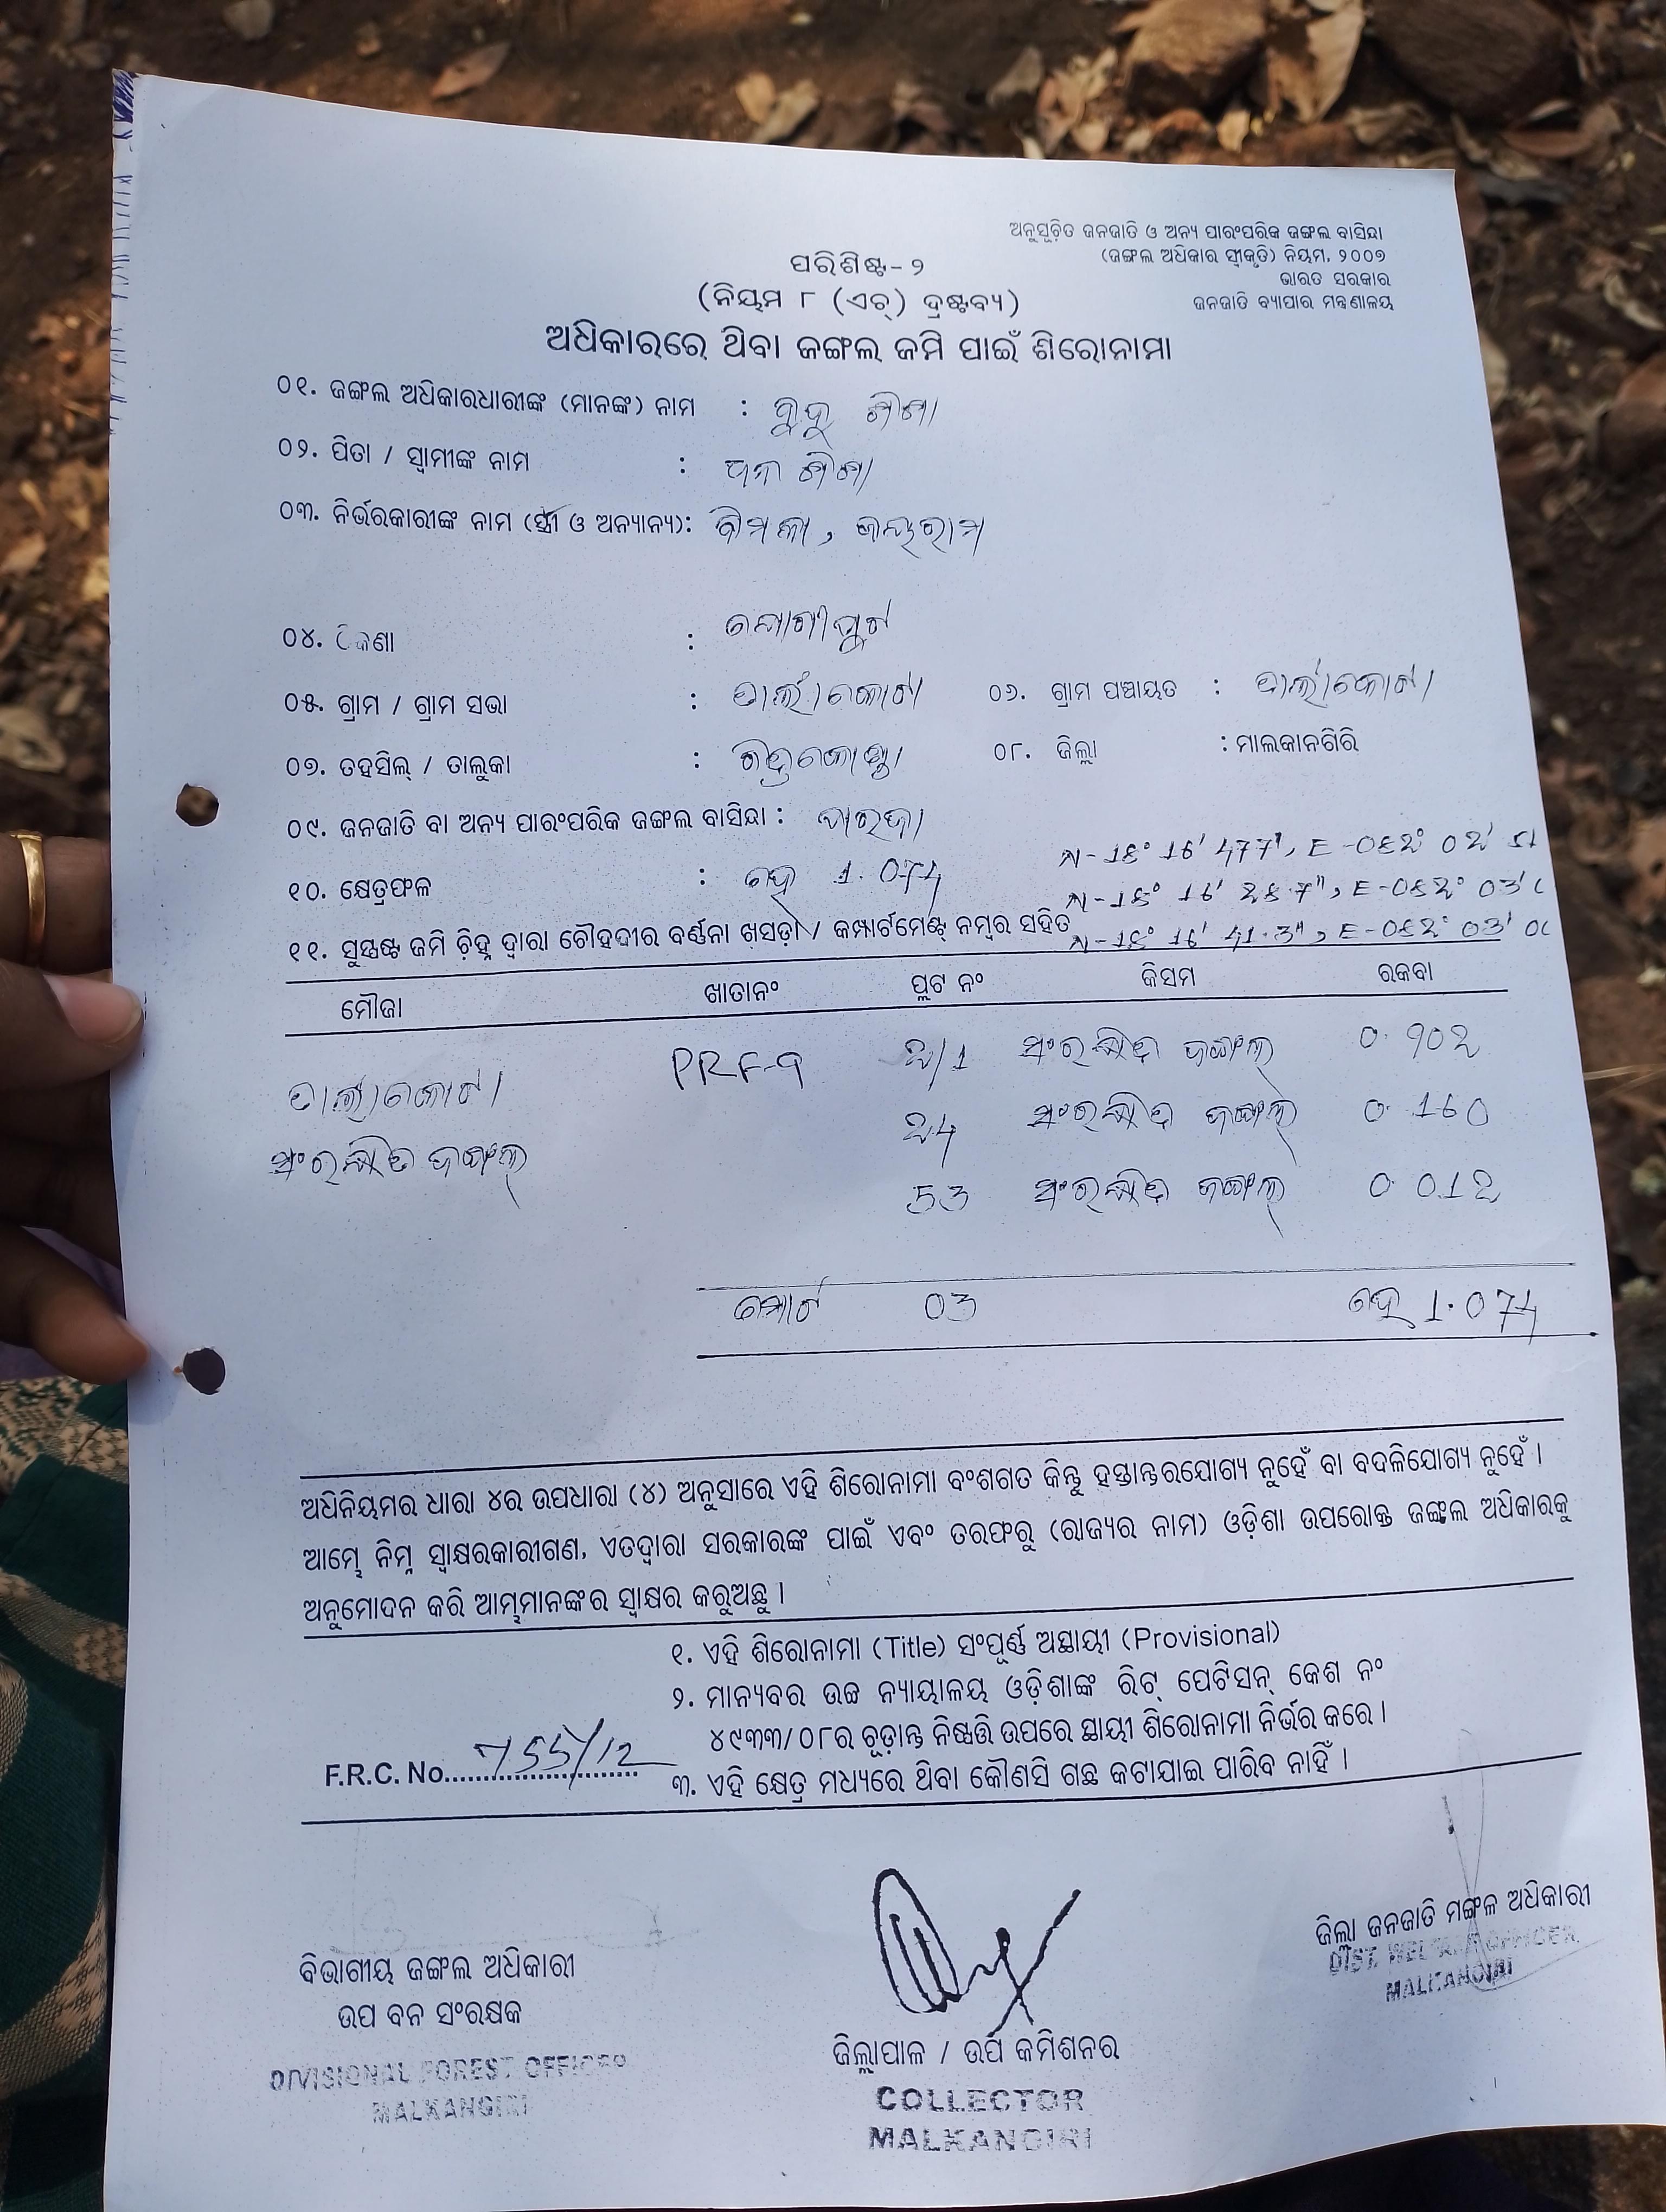 ଅନୁସୂଚିତ ଜନଜାତି ଓ ଅନ୍ୟ ପାରଂପରିକ ଜଙ୍ଗଲ ବାସିନ୍ଦା
(ଜଙ୍ଗଲ ଅଧିକାର ସ୍ୱୀକୃତି) ନିୟମ, ୨୦୦୭
ଭାରତ ସରକାର
ଜନଜାତି ବ୍ୟାପାର ମନ୍ତ୍ରଣାଳୟ
ପରିଶିଷ୍ଟ-୨
(ନିୟମ ୮ (ଏଚ୍) ଦ୍ରଷ୍ଟବ୍ୟ)
ଅଧିକାରରେ ଥିବା ଜଙ୍ଗଲ ଜମି ପାଇଁ ଶିରୋନାମା
୦୧. ଜଙ୍ଗଲ ଅଧିକାରଧାରୀଙ୍କ (ମାନଙ୍କ) ନାମ :
୦୨. ପିତା / ସ୍ୱାମୀଙ୍କ ନାମ :
୦୩. ନିର୍ଭରକାରୀଙ୍କ ନାମ (ସ୍ତ୍ରୀ ଓ ଅନ୍ୟାନ୍ୟ): ବିମଳା, ଜୟରାମ
୦୪. ଠିକଣା :
୦୫. ଗ୍ରାମ / ଗ୍ରାମ ସଭା : ୦୬. ଗ୍ରାମ ପଞ୍ଚାୟତ :
୦୭. ତହସିଲ୍ / ତାଲୁକା : ୦୮. ଜିଲ୍ଲା : ମାଲକାନଗିରି
୦୯. ଜନଜାତି ବା ଅନ୍ୟ ପାରଂପରିକ ଜଙ୍ଗଲ ବାସିନ୍ଦା :
୧୦. କ୍ଷେତ୍ରଫଳ : ହେ 1.074
୧୧. ସୁସ୍ପଷ୍ଟ ଜମି ଚିହ୍ନ ଦ୍ୱାରା ଚୌହଦୀର ବର୍ଣ୍ଣନା ଖସଡ଼ା / କମ୍ପାର୍ଟମେଣ୍ଟ୍ ନମ୍ବର ସହିତ
ମୌଜା ଖାତାନଂ ପ୍ଲଟ ନଂ କିସମ ରକବା
PRF-9 2/1 ସଂରକ୍ଷିତ ଜଙ୍ଗଲ 0.902
24 ସଂରକ୍ଷିତ ଜଙ୍ଗଲ 0.160
ସଂରକ୍ଷିତ ଜଙ୍ଗଲ
53 ସଂରକ୍ଷିତ ଜଙ୍ଗଲ 0.012
ମୋଟ 03 ହେ 1.074
ଅଧିନିୟମର ଧାରା ୪ର ଉପଧାରା (୪) ଅନୁସାରେ ଏହି ଶିରୋନାମା ବଂଶଗତ କିନ୍ତୁ ହସ୍ତାନ୍ତରଯୋଗ୍ୟ ନୁହେଁ ବା ବଦଳିଯୋଗ୍ୟ ନୁହେଁ ।
ଆମ୍ଭେ ନିମ୍ନ ସ୍ୱାକ୍ଷରକାରୀଗଣ, ଏତଦ୍ୱାରା ସରକାରଙ୍କ ପାଇଁ ଏବଂ ତରଫରୁ (ରାଜ୍ୟର ନାମ) ଓଡ଼ିଶା ଉପରୋକ୍ତ ଜଙ୍ଗଲ ଅଧିକାରକୁ
ଅନୁମୋଦନ କରି ଆମ୍ଭମାନଙ୍କର ସ୍ୱାକ୍ଷର କରୁଅଛୁ ।
୧. ଏହି ଶିରୋନାମା (Title) ସଂପୂର୍ଣ୍ଣ ଅସ୍ଥାୟୀ (Provisional)
୨. ମାନ୍ୟବର ଉଚ୍ଚ ନ୍ୟାୟାଳୟ ଓଡ଼ିଶାଙ୍କ ରିଟ୍ ପେଟିସନ୍ କେଶ ନଂ
୪୯୩୩/୦୮ର ଚୂଡ଼ାନ୍ତ ନିଷ୍ପତ୍ତି ଉପରେ ସ୍ଥାୟୀ ଶିରୋନାମା ନିର୍ଭର କରେ ।
F.R.C. No. 755/12
୩. ଏହି କ୍ଷେତ୍ର ମଧ୍ୟରେ ଥିବା କୌଣସି ଗଛ କଟାଯାଇ ପାରିବ ନାହିଁ ।
ବିଭାଗୀୟ ଜଙ୍ଗଲ ଅଧିକାରୀ
ଉପ ବନ ସଂରକ୍ଷକ
DIVISIONAL FOREST OFFICER
MALKANGIRI
ଜିଲ୍ଲାପାଳ / ଉପ କମିଶନର
COLLECTOR
MALKANGIRI
ଜିଲ୍ଲା ଜନଜାତି ମଙ୍ଗଳ ଅଧିକାରୀ
DIST. WELFARE OFFICER
MALKANGIRI